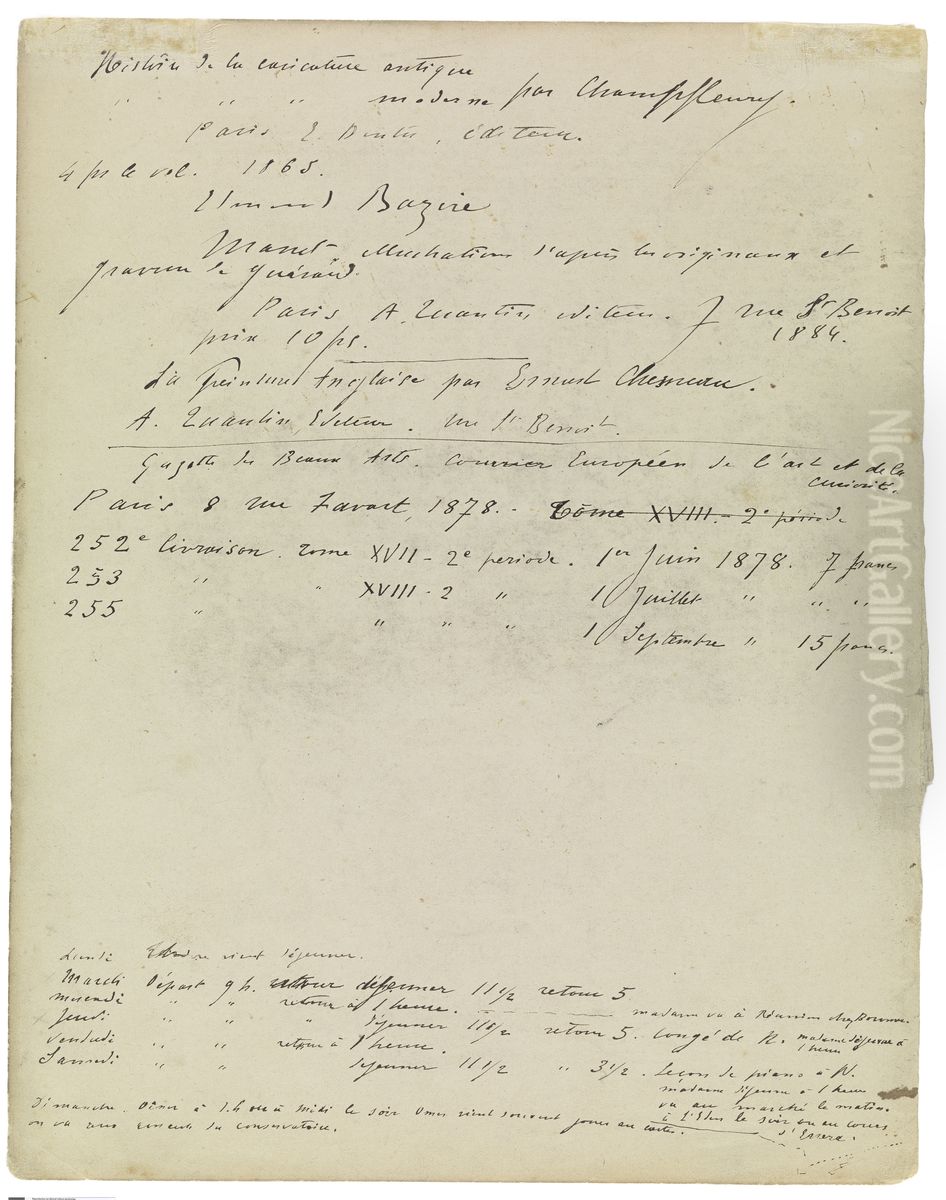 Histoire de la caricature antique
" " " moderne par Champfleury.
Paris E. Dentu, éditeur.
4 frs le vol. 1865.
Edmond Bazire
Manet illustrations d'après les originaux et
gravure de Guérard.
Paris A. Quantin editeur. 7 rue St Benoit
prix 10 frs. 1884.
La Peinture Anglaise par Ernest Chesneau.
A. Quantin Editeur. rue St Benoit.
Gazette des Beaux Arts. Courrier Européen de l'art et de la
curiosité.
Paris 8 rue Favart, 1878. - Tome XVIII - 2e période
252e livraison. Tome XVII - 2e periode. 1er Juin 1878. 7 francs
253 " " XVIII - 2 " 1 Juillet " " "
255 " " " " 1 Septembre " 15 francs.
Lundi vient déjeuner.
Mardi Départ 9 h. retour déjeuner 11 1/2 retour 5
mercredi " " retour à 1 heure. madame va à Réunion chez
Jeudi " " " déjeuner 11 1/2 retour 5. congé de R. madame déjeune à
1 heure
Vendredi " " retour à 1 heure.
Samedi " " dejeuner 11 1/2 " 3 1/2. leçon de piano à
madame déjeune à 1 heure
va au marché le matin.
à l'Eden le soir ou au cours
d'Essera.
Dimanche. Diner à 1 h ou à midi le soir vient souvent jouer au cartes.
on va aux concerts du conservatoire.
NiceArtGallery.com